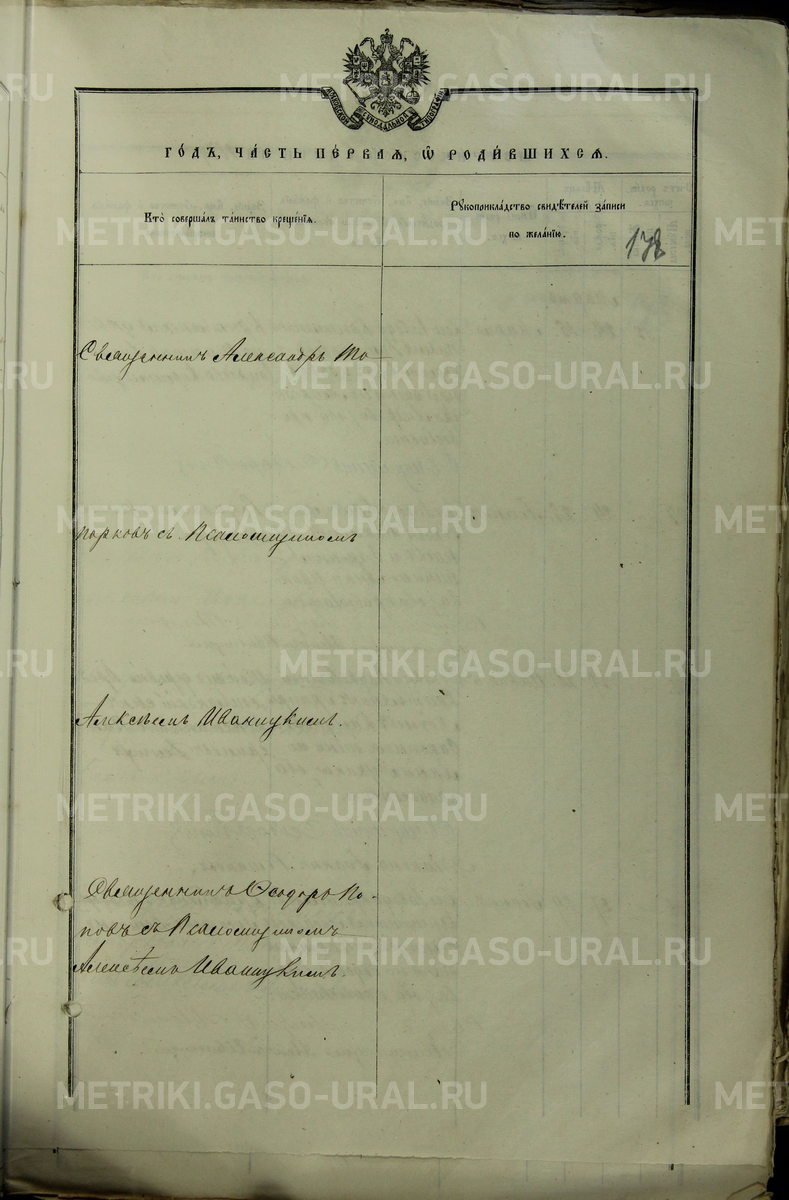 ГО́ДЪ, ЧА́СТЬ ПЕ́РВАѦ, Ѡ҆ РОДИ́ВШИХСѦ.
Кто̀ соверша́лъ та́инство креще́нїѧ.
Рꙋкоприкла́дство свидѣ́телей за́писи
по жела́нїю.
178
Священникъ Александръ То
порковъ съ Псаломщикомъ
Алексѣемъ Иваницкимъ.
Священникъ Ѳеодоръ По-
повъ съ Псаломщикомъ
Алексѣемъ Иваницкимъ.
METRIKI.GASO-URAL.RU